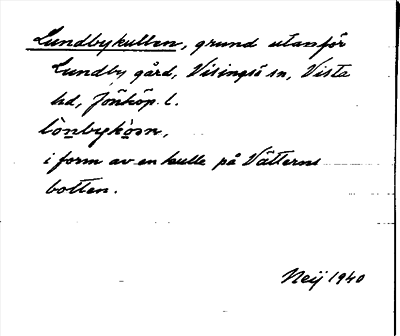 Lundbykullen, grund utanför
Lundby gård, Visingsö sn, Vista
hd, Jönköp. l.
i form av en kulle på Vätterns
botten.
Neij 1940